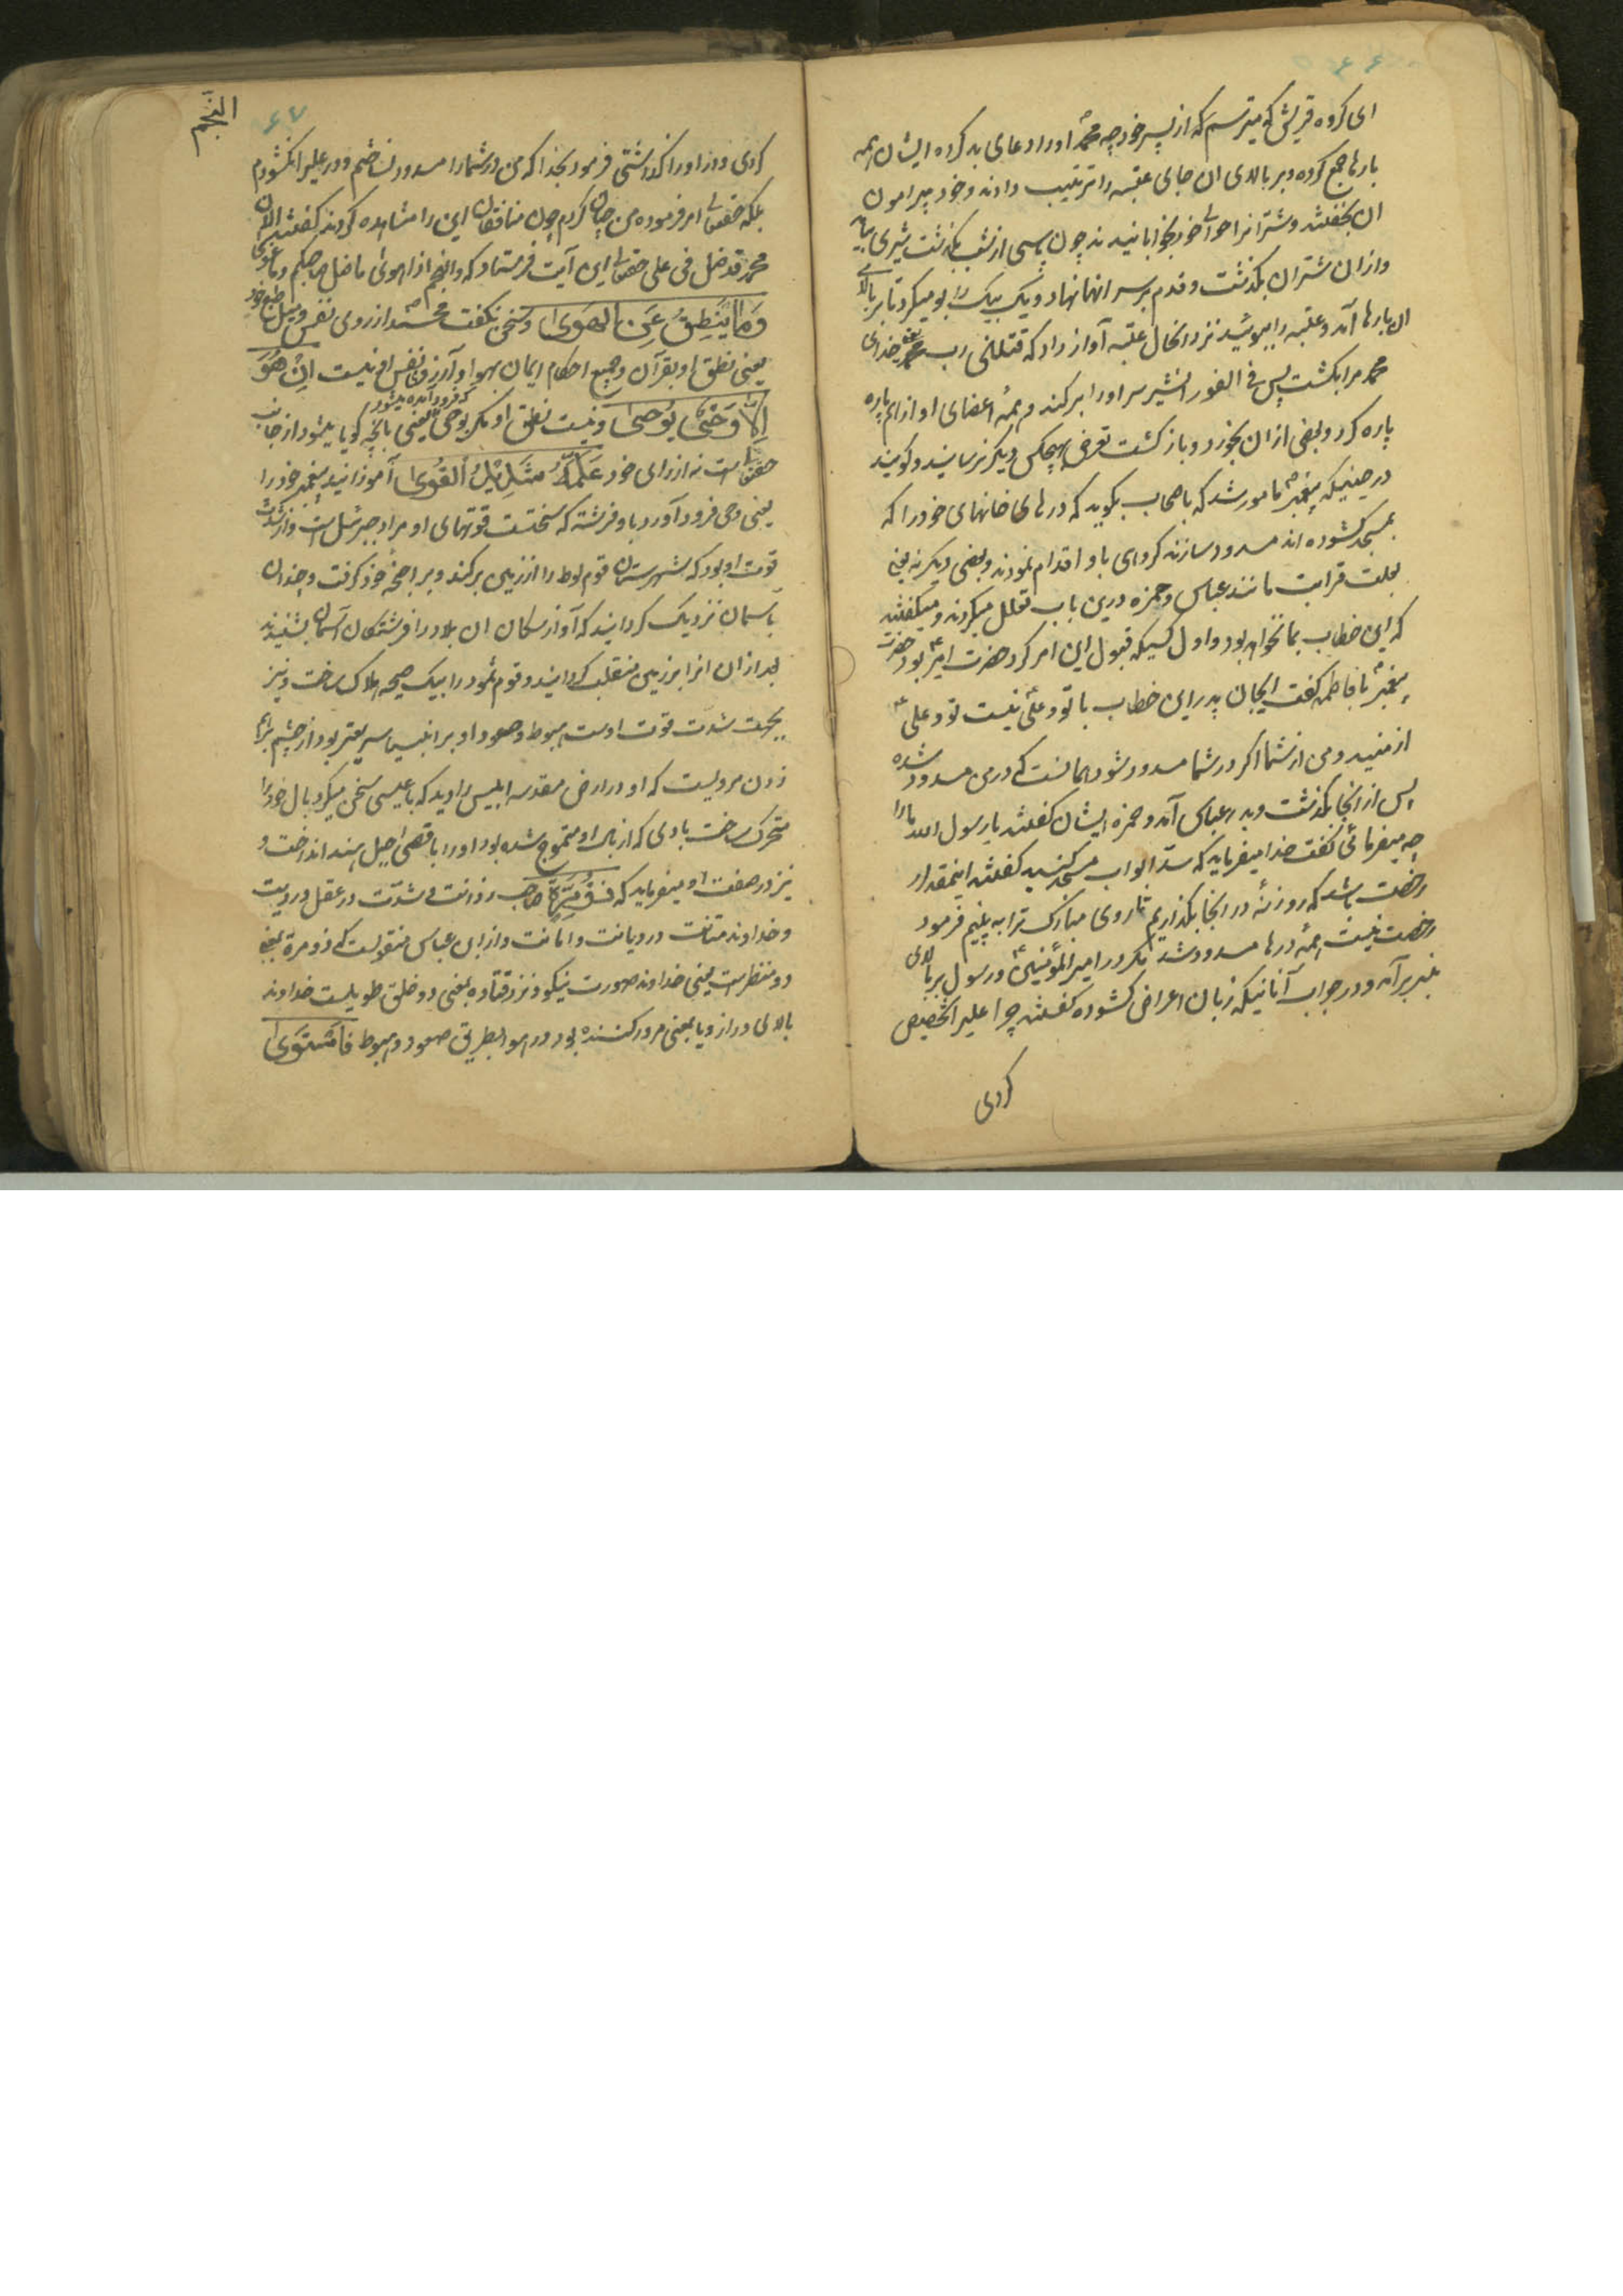 ۶۶
ای کروه قریش که میترسم که از پسر خود چه محمد اورا دعای بد کرده ایشان همه
بارها جمع کرده و بر بالای ان جای عتبه را ترتیب دادند و خود پیرامون
ان بخفتند و شتران را حوالی خود بخوابانیدند چون پاسی از شب بگذشت شیری بیامد
و از ان شتران بگذشت و قدم بر سر انها نهاد و یک بیک را بو میکرد تا بر بالای
ان بارها آمد و عتبه را ببوئید در انحال عتبه آواز داد که قتلنی رب محمد یعنی خدای
محمد مرا بکشت پس فی الفور ان شیر سر اورا بر کند و همهٔ اعضای او از هم پاره
پاره کرد و بعضی از ان بخورد و باز کشت و تعرض بهیچکس دیکر نرسانید و کویند
در حینیکه پیغمبر ص مامور شد که باصحاب بکوید که درهای خانهای خود را که
بمسجد کشوده اند مسدود سازند کروهی باو اقدام نمودند و بعضی دیکر نه یعنی
بعلت قرابت مانند عباس و حمزه درین باب تعلل میکردند و میکفتند
که این خطاب بما نخواهد بود و اول کسیکه قبول این امر کرد حضرت امیر بود حضرت
پیغمبر با فاطمه کفت ایجان پدر این خطاب با تو و علی نیست تو و علی
از منید و من از شما اکر در شما مسدود شود همانست که در من مسدود شده
پس از انجا بگذشت و بدر عباس آمد و حمزه ایشان کفتند یا رسول الله مارا
چه میفرمائی کفت خدا میفرماید که سد ابواب مسجد کنید کفتند اینمقدار
رخصت باشد که روزنهٔ در انجا بکذاریم تا روی مبارک ترا به بینیم فرمود
رخصت نیست همه درها مسدود شد مکر در امیر المؤمنین و رسول بر بالای
منبر بر آمد و در جواب آنانیکه زبان اعراض کشوده کفتند چرا علیرا تخصیص
کردی
النجم
۶۷
کردی و در اورا کذاشتی فرمود بخدا که من در شمارا مسدود نساختم و در علیرا نکشودم
بلکه حقتعالی امر فرموده من چنان کردم چون منافقان این را مشاهده کردند کفتند الان
محمد قد ضل فی علی حقتعالی این آیت فرستاد که والنجم اذا هوی ما ضل صاحبکم وما غوی
وَمَا یَنطِقُ عَنِ الهَوىٰ و سخن نکفت محمد ص از روی نفس و میل طبع خود
یعنی نطق او بقرآن و جمیع احکام ایمان بهوا و آرزوی نفس او نیست اِن هُوَ
اِلّا وَحیٌ یُوحیٰ و نیست نطق او مکر بوحی که فرود آمده میشود یعنی بانچه کویا میشود از جانب
حقتعالی است نه از رای خود عَلَّمَهُ شَدِیدُ القُوىٰ آموزانید پیغمبر خود را
یعنی وحی فرود آورد باو فرشته که سختست قوتهای او مراد جبرئیل است و از شدت
قوت او بود که شهرستان قوم لوط را از زمین بر کند و بر اجنحهٔ خود کرفت و چندان
باسمان نزدیک کردانید که آواز سکان ان بلاد را فرشتکان آسمان بشنیدند
بعد از ان انرا بر زمین منقلب کردانید و قوم ثمود را بیک صیحه هلاک ساخت و نیز
بجهت شدت قوت اوست هبوط و صعود او بر انبیا سریعتر بود از چشم بر هم
زدن مرویست که او در ارض مقدسه ابلیس را دید که با عیسی سخن میکرد بال خود را
متحرک ساخت بادی که از بال او متموج شده بود اورا باقصی جبل هند انداخت و
نیز در صفت او میفرماید که ذُو مِرَّةٍ صاحب رزانت و شدت در عقل و رویت
و خداوند متانت در دیانت و امانت و از ابن عباس منقولست که ذو مرة یعنی
ذو منظر است یعنی خداوند صورت نیکو و نزد قتاده بمعنی ذو خلق طویلست خداوند
بالای دراز و یا بمعنی مرور کننده بود در هوا بطریق صعود و هبوط فَاستَوىٰ